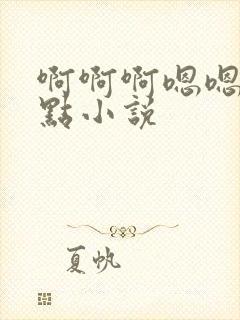 啊啊啊嗯嗯
點小説
夏帆